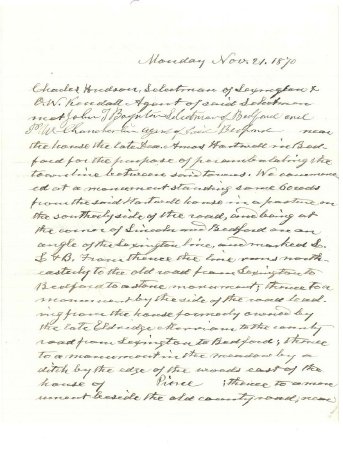 Monday Nov. 21. 1870
Charles Hudson, Selectman of Lexington &
O. W. Kendall Agent of said Selectmen
met John T Boynton Selectman of Bedford and
W Chamberlin agent of said Bedford near
the house the late Dea. Amos Hartwell in Bed
ford for the purpose of perambulating the
town line between said towns. We commenc
ed at a monument standing some 60 rods
from the said Hartwell house in a pasture on
the southerly side of the road, and being at
the corner of Lincoln and Bedford on an
angle of the Lexington line, and marked L.
L & B. From thence the line runs north-
easterly to the old road from Lexington to
Bedford to a stone monument; thence to a
monument by the side of the road lead-
ing from the house formerly owned by
the late Eldredge Merriam to the county
road from Lexington to Bedford; thence
to a monument in the meadow by a
ditch by the edge of the woods east of the
house of Pierce ; thence to a mon
ument beside the old county road, near